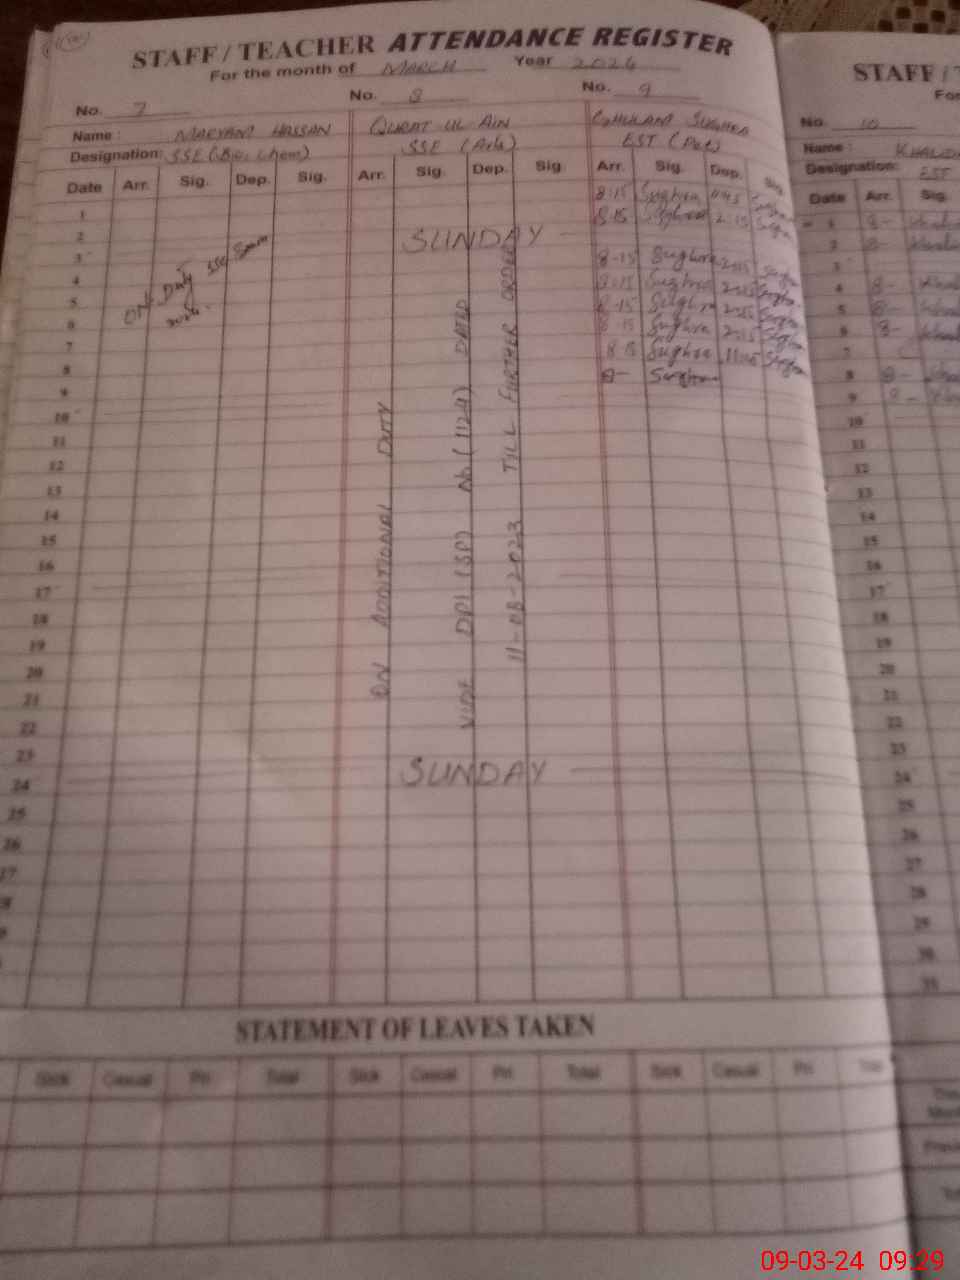 STAFF / TEACHER ATTENDANCE REGISTER
For the month of MARCH Year 2024
No. 7 No. 8 No. 9
Name : MARYAM HASSAN QURAT UL AIN GHULAM SUGHRA
Designation: SSE (Bio, Chem) SSE (Arts) EST (Pet)
Date Arr. Sig. Dep. Sig. Arr. Sig. Dep. Sig. Arr. Sig. Dep. Sig.
1 8-15 Sughra 11:45 Sughra
2 8-15 Sughra 2:15 Sughra
3 SUNDAY
4 8-15 Sughra 2:15 Sughra
5 8-15 Sughra 2:15 Sughra
6 8-15 Sughra 2:15 Sughra
7 8-15 Sughra 2:15 Sughra
8 8-15 Sughra 11:45 Sughra
9 8- Sughra
10
11
12
13
14
15
16
17
18
19
20
21
22
23
24 SUNDAY
25
26
27
ON Duty SSC Exam
2024.
ON ADDITIONAL DUTY
VIDE DPI (SP) No (1124) DATED
11-08-2023 TILL FURTHER ORDER
STATEMENT OF LEAVES TAKEN
Sick Casual Pri Total Sick Casual Pri Total Sick Casual Pri
STAFF / T
For
No. 10
Name : KHALID
Designation: EST
Date Arr. Sig.
1 8-
2 8-
3
4 8-
5 8-
6 8-
7
8 8-
9 8-
10
11
12
13
14
15
16
17
18
19
20
21
22
23
24
25
26
27
28
29
30
31
09-03-24 09:29